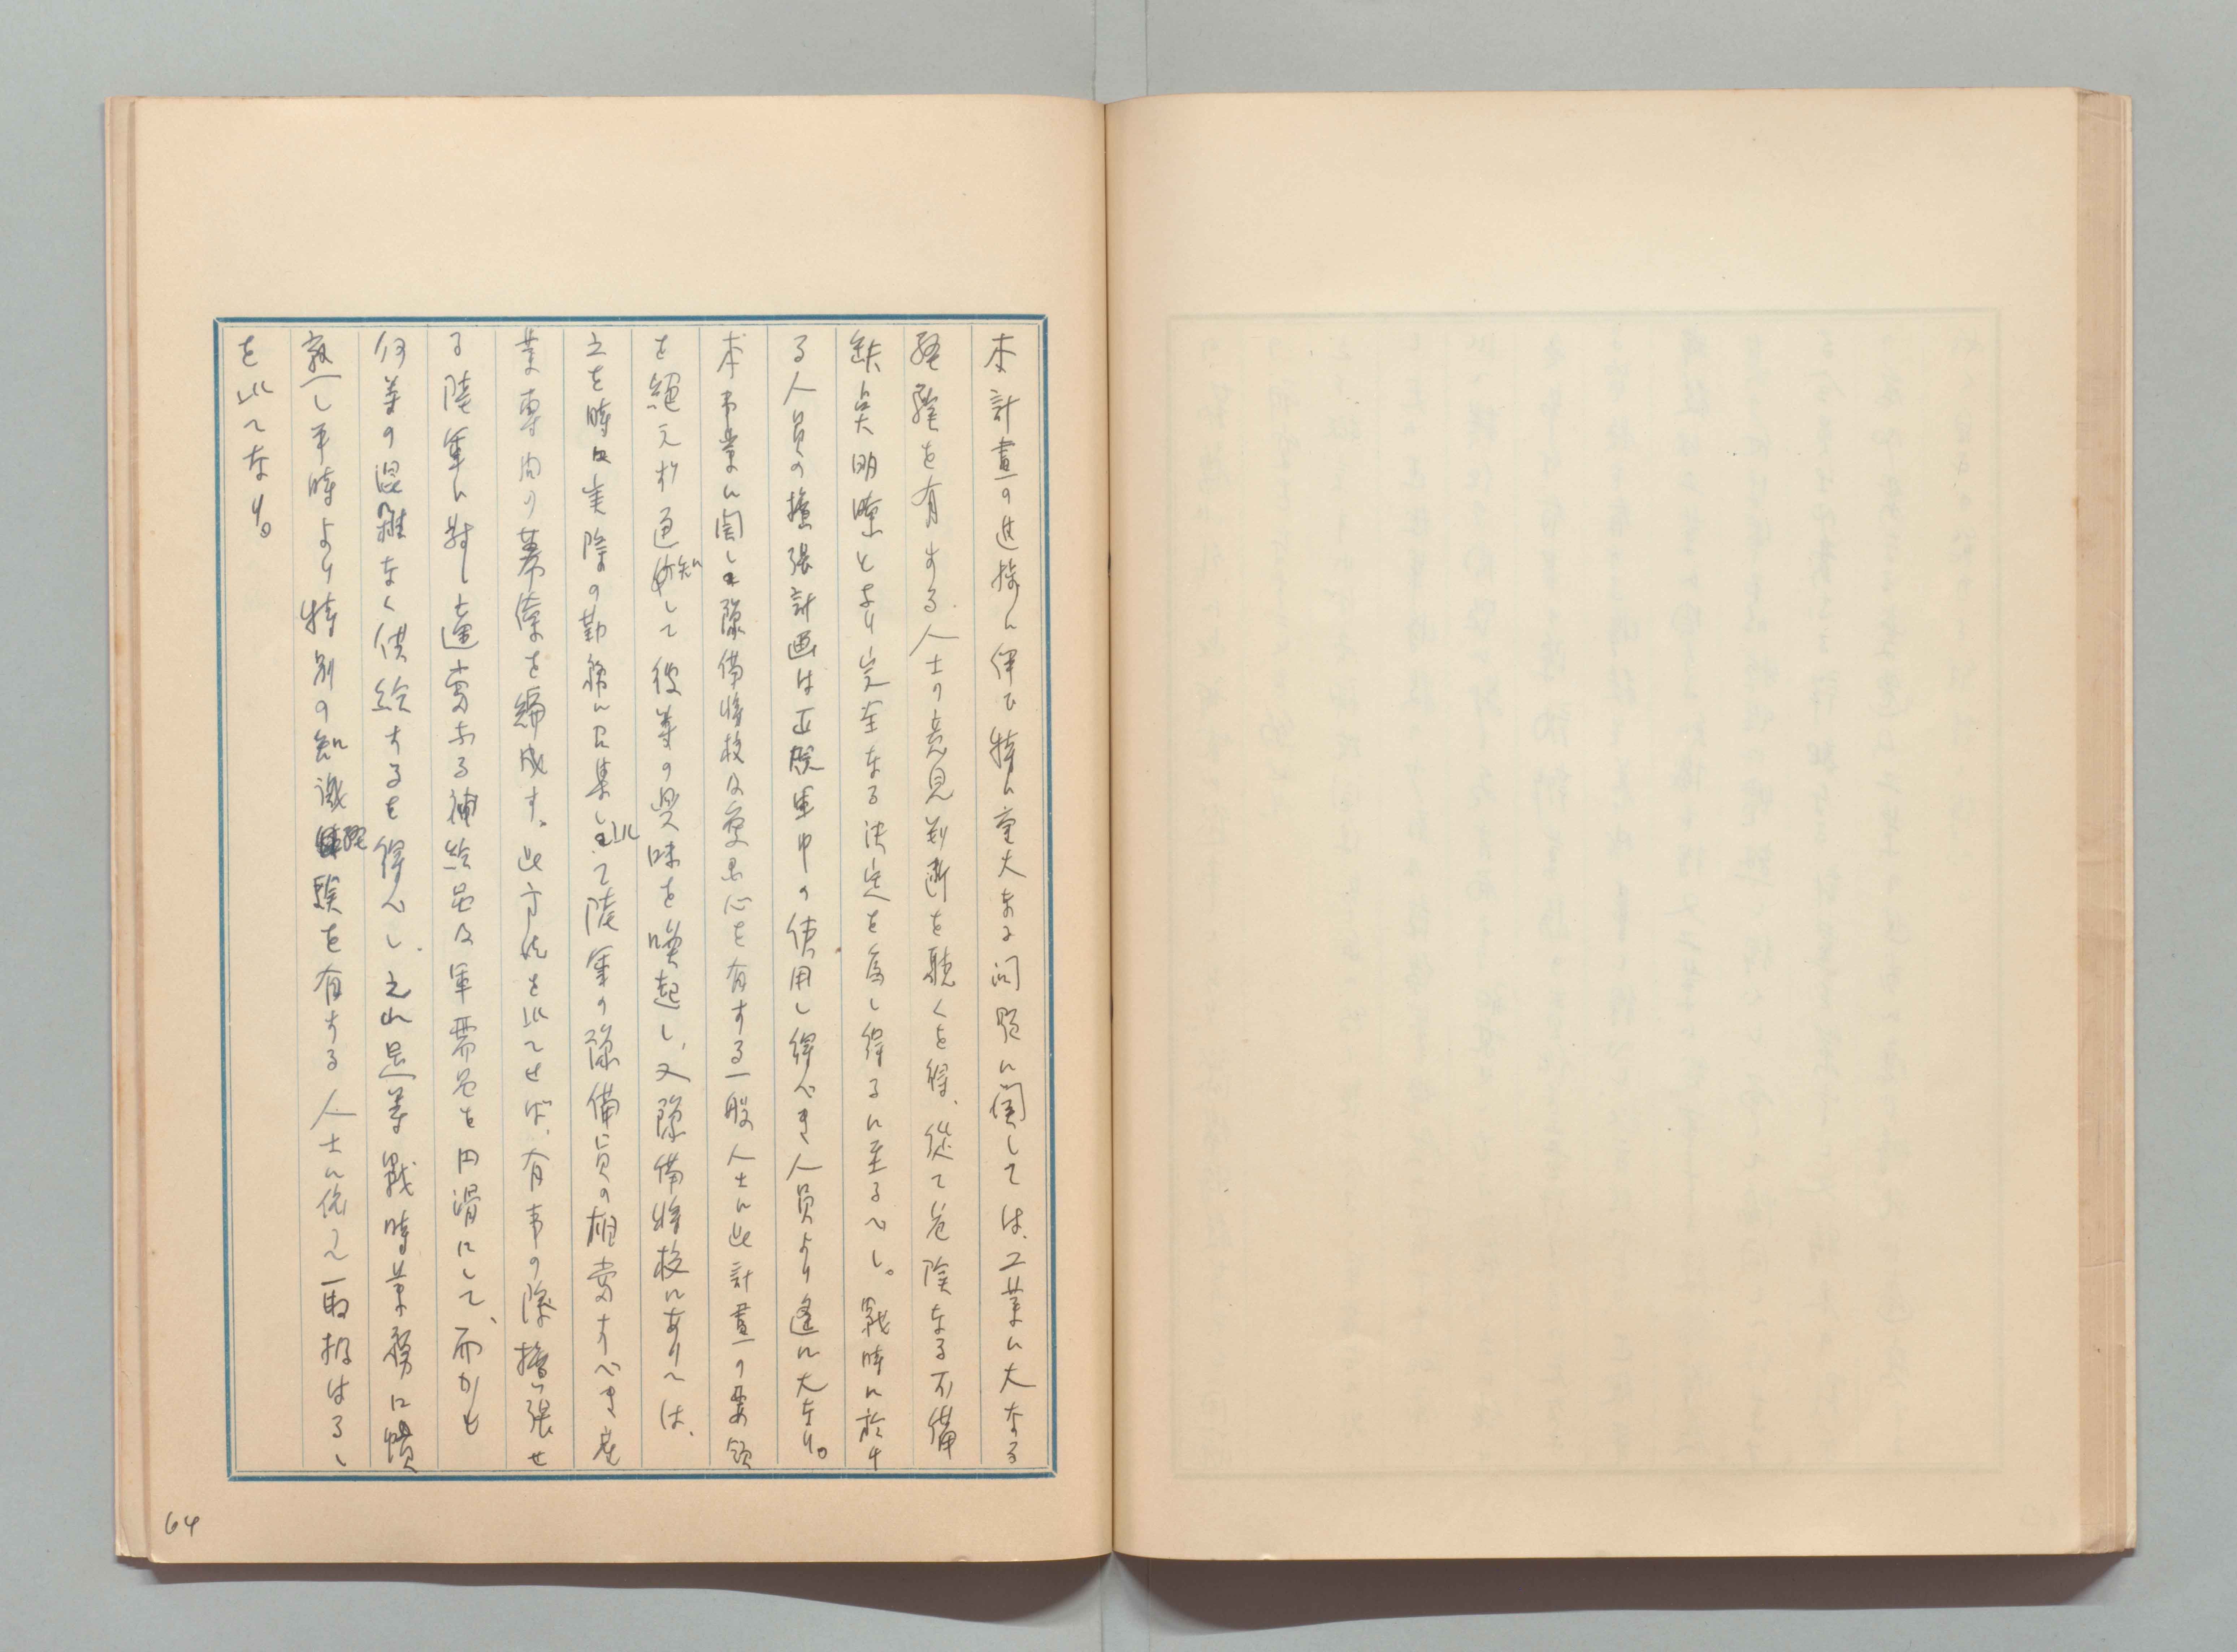 本計畫の進捗に伴ひ特に重大なる問題に関しては、工業に大なる
経験を有する人士の意見判断を聴くを得、従て危険なる不備
缺点明瞭となり完全なる決定を為し得るに至るべし。戦時に於け
る人員の擴張計画は正規軍中の使用し得べき人員より遙に大なり。
本事業に関し豫備将校及愛国心を有する一般人士に此計畫の要領
を絶えず通知して彼等の興味を喚起し、又豫備将校にありては、
之を時々実際の勤務に召集し以て陸軍の豫備員の相当すべき産
業専門の幕僚を編成す。此方法を以てせば、有事の際擴張せ
る陸軍に対し適当なる補給品及軍需品を円滑にして、而かも
何等の混雑なく供給するを得べし、之れ是等戦時業務に慣
熟し平時より特別の知識経験を有する人士に依て取扱はるゝ
を以てなり。
64